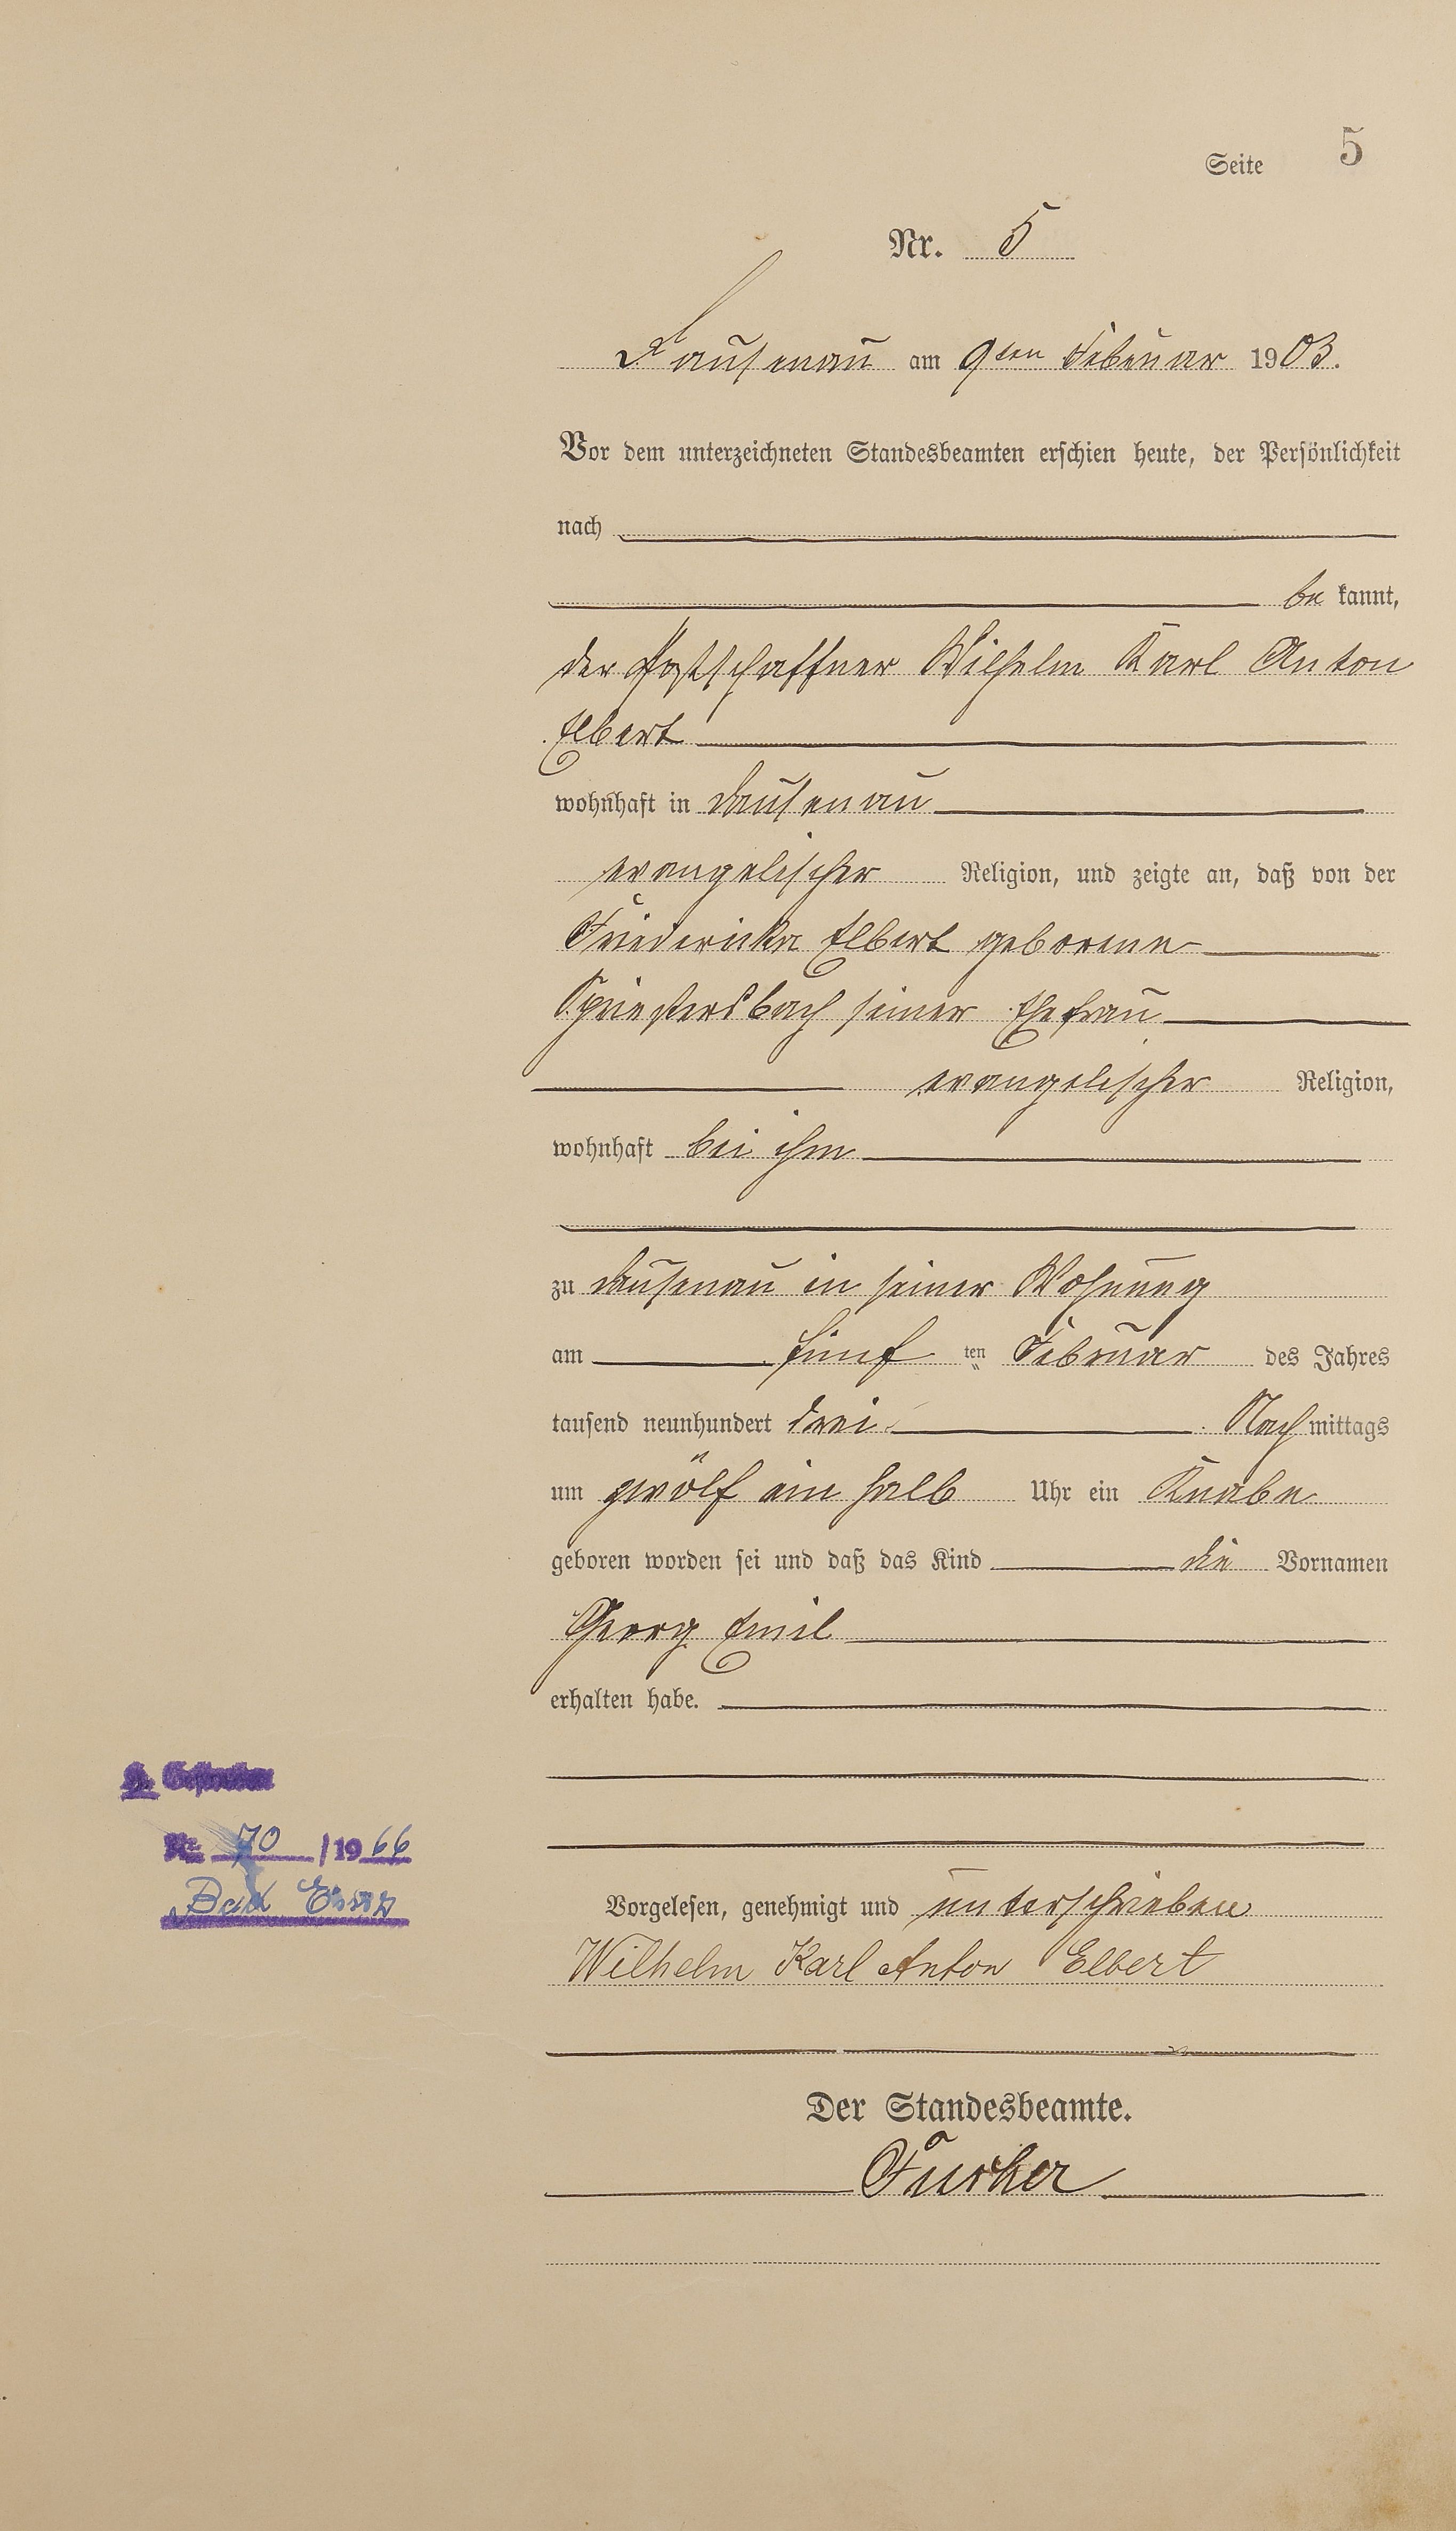 Seite 5
Nr. 5
Dausenau am 9ten Februar 1903.
Vor dem unterzeichneten Standesbeamten erschien heute, der Persönlichkeit
nach
be kannt,
der Postschaffner Wilhelm Karl Anton
Elbert
wohnhaft in Dausenau
evangelischer Religion, und zeigte an, daß von der
Friedericka Elbert geborene
Spriestersbach seiner Ehefrau
evangelischer Religion,
wohnhaft bei ihm
zu Dausenau in seiner Wohnung
am fünf ten Februar des Jahres
tausend neunhundert drei Nach mittags
um zwölf ein halb Uhr ein Knabe
geboren worden sei und daß das Kind die Vornamen
Georg Emil
erhalten habe.
Nr. 70 / 1966
Bad Ems
Vorgelesen, genehmigt und unterschrieben
Wilhelm Karl Anton Elbert
Der Standesbeamte.